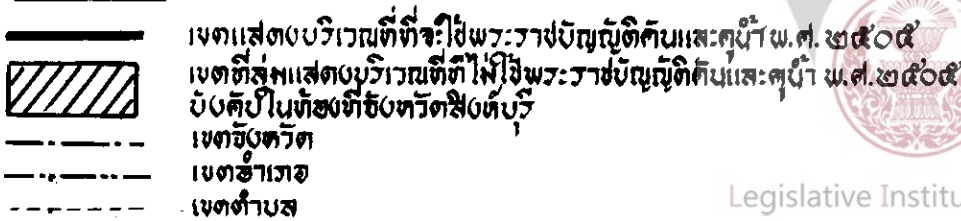 เขตแสดงบริเวณที่ที่จะใช้พระราชบัญญัติคันและคูน้ำ พ.ศ. ๒๕๐๕
เขตที่ลุ่มแสดงบริเวณที่ที่ไม่ใช้พระราชบัญญัติคันและคูน้ำ พ.ศ. ๒๕๐๕
บังคับในท้องที่จังหวัดสิงห์บุรี
เขตจังหวัด
เขตอำเภอ
เขตตำบล
Legislative Institu